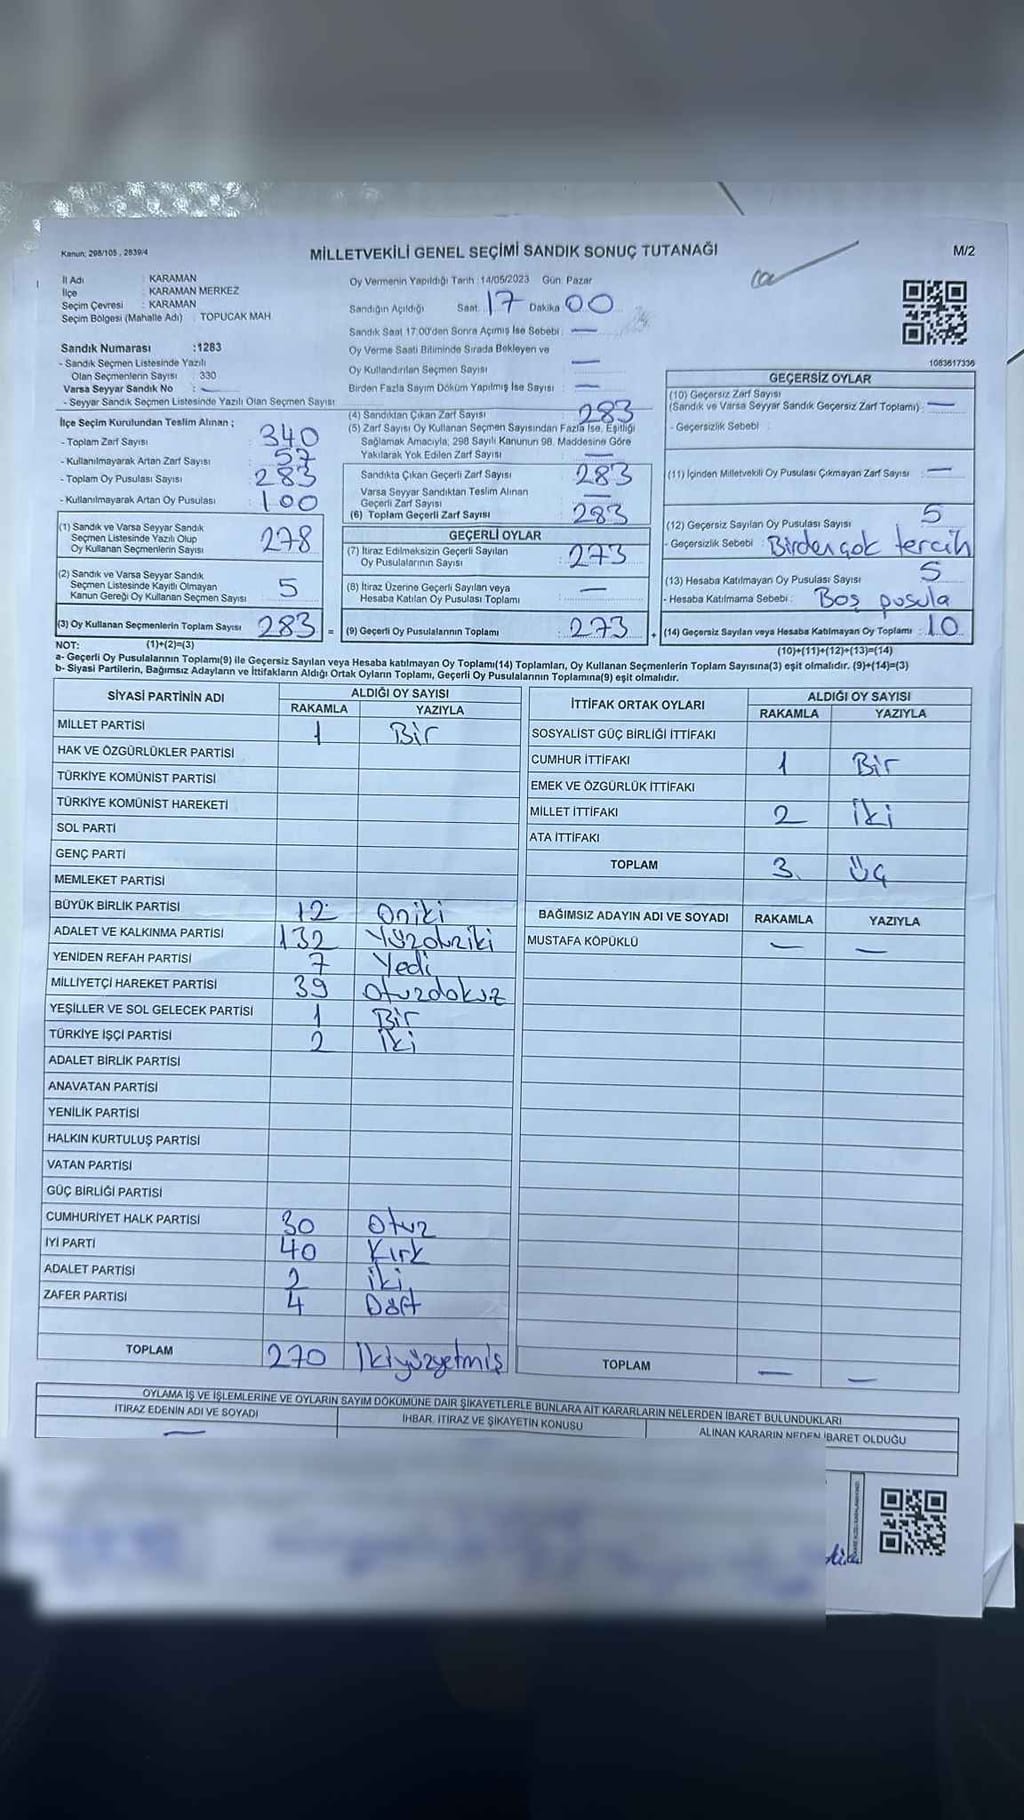 Kanun; 298/105 , 2839/4
MİLLETVEKİLİ GENEL SEÇİMİ SANDIK SONUÇ TUTANAĞI
M/2
İl Adı : KARAMAN
İlçe : KARAMAN MERKEZ
Seçim Çevresi : KARAMAN
Seçim Bölgesi (Mahalle Adı) : TOPUCAK MAH
Sandık Numarası :1283
- Sandık Seçmen Listesinde Yazılı
Olan Seçmenlerin Sayısı : 330
Varsa Seyyar Sandık No : —
- Seyyar Sandık Seçmen Listesinde Yazılı Olan Seçmen Sayısı:
Oy Vermenin Yapıldığı Tarih : 14/05/2023 Gün: Pazar
Sandığın Açıldığı Saat: 17 Dakika 00
Sandık Saat 17:00'den Sonra Açımış İse Sebebi : —
Oy Verme Saati Bitiminde Sırada Bekleyen ve
Oy Kullandırılan Seçmen Sayısı : —
Birden Fazla Sayım Döküm Yapılmış İse Sayısı : —
1083617336
İlçe Seçim Kurulundan Teslim Alınan ;
- Toplam Zarf Sayısı : 340
- Kullanılmayarak Artan Zarf Sayısı : 57
- Toplam Oy Pusulası Sayısı : 283
- Kullanılmayarak Artan Oy Pusulası : 100
(1) Sandık ve Varsa Seyyar Sandık
Seçmen Listesinde Yazılı Olup
Oy Kullanan Seçmenlerin Sayısı : 278
(2) Sandık ve Varsa Seyyar Sandık
Seçmen Listesinde Kayıtlı Olmayan
Kanun Gereği Oy Kullanan Seçmen Sayısı : 5
(3) Oy Kullanan Seçmenlerin Toplam Sayısı : 283 =
(1)+(2)=(3)
(4) Sandıktan Çıkan Zarf Sayısı : 283
(5) Zarf Sayısı Oy Kullanan Seçmen Sayısından Fazla İse, Eşitliği
Sağlamak Amacıyla, 298 Sayılı Kanunun 98. Maddesine Göre
Yakılarak Yok Edilen Zarf Sayısı : —
Sandıkta Çıkan Geçerli Zarf Sayısı : 283
Varsa Seyyar Sandıktan Teslim Alınan
Geçerli Zarf Sayısı : —
(6) Toplam Geçerli Zarf Sayısı : 283
GEÇERLİ OYLAR
(7) İtiraz Edilmeksizin Geçerli Sayılan
Oy Pusulalarının Sayısı : 273
(8) İtiraz Üzerine Geçerli Sayılan veya
Hesaba Katılan Oy Pusulası Toplamı : —
(9) Geçerli Oy Pusulalarının Toplamı : 273 +
GEÇERSİZ OYLAR
(10) Geçersiz Zarf Sayısı
(Sandık ve Varsa Seyyar Sandık Geçersiz Zarf Toplamı) : —
- Geçersizlik Sebebi :
(11) İçinden Milletvekili Oy Pusulası Çıkmayan Zarf Sayısı : —
(12) Geçersiz Sayılan Oy Pusulası Sayısı : 5
- Geçersizlik Sebebi : Birden çok tercih
(13) Hesaba Katılmayan Oy Pusulası Sayısı : 5
- Hesaba Katılmama Sebebi : Boş pusula
(14) Geçersiz Sayılan veya Hesaba Katılmayan Oy Toplamı : 10
(10)+(11)+(12)+(13)=(14)
NOT:
a- Geçerli Oy Pusulalarının Toplamı(9) ile Geçersiz Sayılan veya Hesaba katılmayan Oy Toplamı(14) Toplamları, Oy Kullanan Seçmenlerin Toplam Sayısına(3) eşit olmalıdır. (9)+(14)=(3)
b- Siyasi Partilerin, Bağımsız Adayların ve İttifakların Aldığı Ortak Oyların Toplamı, Geçerli Oy Pusulalarının Toplamına(9) eşit olmalıdır.
SİYASİ PARTİNİN ADI ALDIĞI OY SAYISI
RAKAMLA YAZIYLA
MİLLET PARTİSİ 1 Bir
HAK VE ÖZGÜRLÜKLER PARTİSİ
TÜRKİYE KOMÜNİST PARTİSİ
TÜRKİYE KOMÜNİST HAREKETİ
SOL PARTİ
GENÇ PARTİ
MEMLEKET PARTİSİ
BÜYÜK BİRLİK PARTİSİ 12 Oniki
ADALET VE KALKINMA PARTİSİ 132 Yüzotuziki
YENİDEN REFAH PARTİSİ 7 Yedi
MİLLİYETÇİ HAREKET PARTİSİ 39 Otuzdokuz
YEŞİLLER VE SOL GELECEK PARTİSİ 1 Bir
TÜRKİYE İŞÇİ PARTİSİ 2 İki
ADALET BİRLİK PARTİSİ
ANAVATAN PARTİSİ
YENİLİK PARTİSİ
HALKIN KURTULUŞ PARTİSİ
VATAN PARTİSİ
GÜÇ BİRLİĞİ PARTİSİ
CUMHURİYET HALK PARTİSİ 30 Otuz
İYİ PARTİ 40 Kırk
ADALET PARTİSİ 2 İki
ZAFER PARTİSİ 4 Dört
TOPLAM 270 İkiyüzyetmiş
İTTİFAK ORTAK OYLARI ALDIĞI OY SAYISI
RAKAMLA YAZIYLA
SOSYALİST GÜÇ BİRLİĞİ İTTİFAKI
CUMHUR İTTİFAKI 1 Bir
EMEK VE ÖZGÜRLÜK İTTİFAKI
MİLLET İTTİFAKI 2 İki
ATA İTTİFAKI
TOPLAM 3 Üç
BAĞIMSIZ ADAYIN ADI VE SOYADI RAKAMLA YAZIYLA
MUSTAFA KÖPÜKLÜ — —
TOPLAM — —
OYLAMA İŞ VE İŞLEMLERİNE VE OYLARIN SAYIM DÖKÜMÜNE DAİR ŞİKAYETLERLE BUNLARA AİT KARARLARIN NELERDEN İBARET BULUNDUKLARI
İTİRAZ EDENİN ADI VE SOYADI İHBAR, İTİRAZ VE ŞİKAYETİN KONUSU ALINAN KARARIN NEDEN İBARET OLDUĞU
—